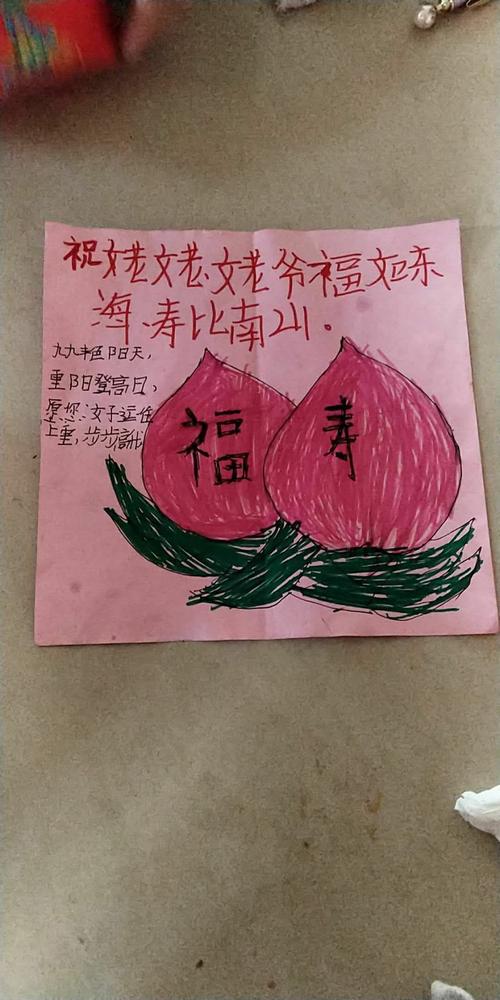 祝姥姥、姥爷福如东
海.寿比南山。
九九艳阳天,
重阳登高日,
愿您:好运往
上重,步步高
福 寿